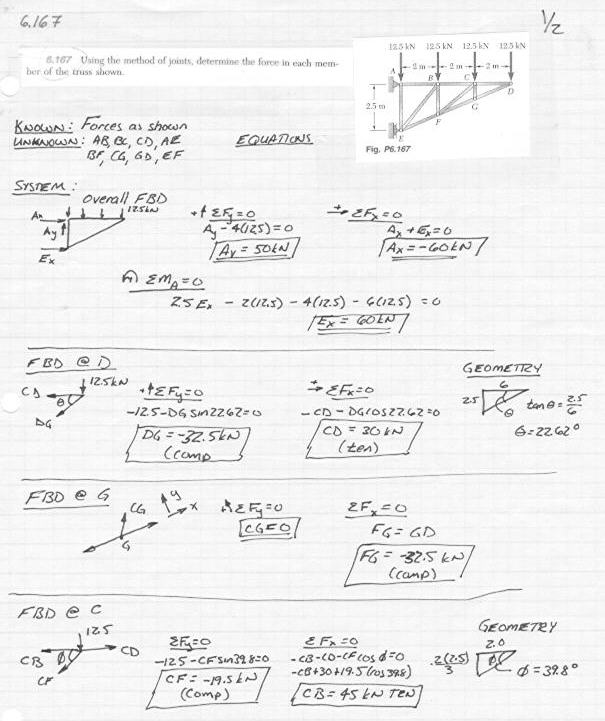 6.167
1/2
6.167 Using the method of joints, determine the force in each mem-
ber of the truss shown.
12.5 kN 12.5 kN 12.5 kN 12.5 kN
2 m 2 m 2 m
A B C D
2.5 m
G
F
E
Fig. P6.167
KNOWN: Forces as shown
UNKNOWN: AB, BC, CD, AE
BF, CG, GD, EF
EQUATIONS
SYSTEM:
overall FBD
12.5kN
Ax
Ay
Ex
+↑ ΣFy=0
Ay - 4(12.5) = 0
Ay = 50kN
+→ ΣFx=0
Ax + Ex = 0
Ax = -60kN
ΣMA=0
2.5 Ex - 2(12.5) - 4(12.5) - 6(12.5) = 0
Ex = 60kN
FBD @ D
CD
12.5kN
θ
DG
+↑ΣFy=0
-12.5-DG sin22.62=0
DG = -32.5kN
(comp
+→ ΣFx=0
-CD - DGcos22.62=0
CD = 30 kN
(ten)
GEOMETRY
6
2.5
θ
tan θ = 2.5/6
θ=22.62°
FBD @ G
CG
y
x
G
ΣFy=0
CG=0
ΣFx=0
FG = GD
FG = -32.5 kN
(comp)
FBD @ C
12.5
CB
CD
φ
CF
ΣFy=0
-12.5-CFsin39.8=0
CF = -19.5kN
(comp)
ΣFx=0
-CB-CD-CFcos φ=0
-CB+30+19.5(cos39.8)
CB = 45 kN TEN
GEOMETRY
2.0
2(2.5)/3
φ
φ=39.8°